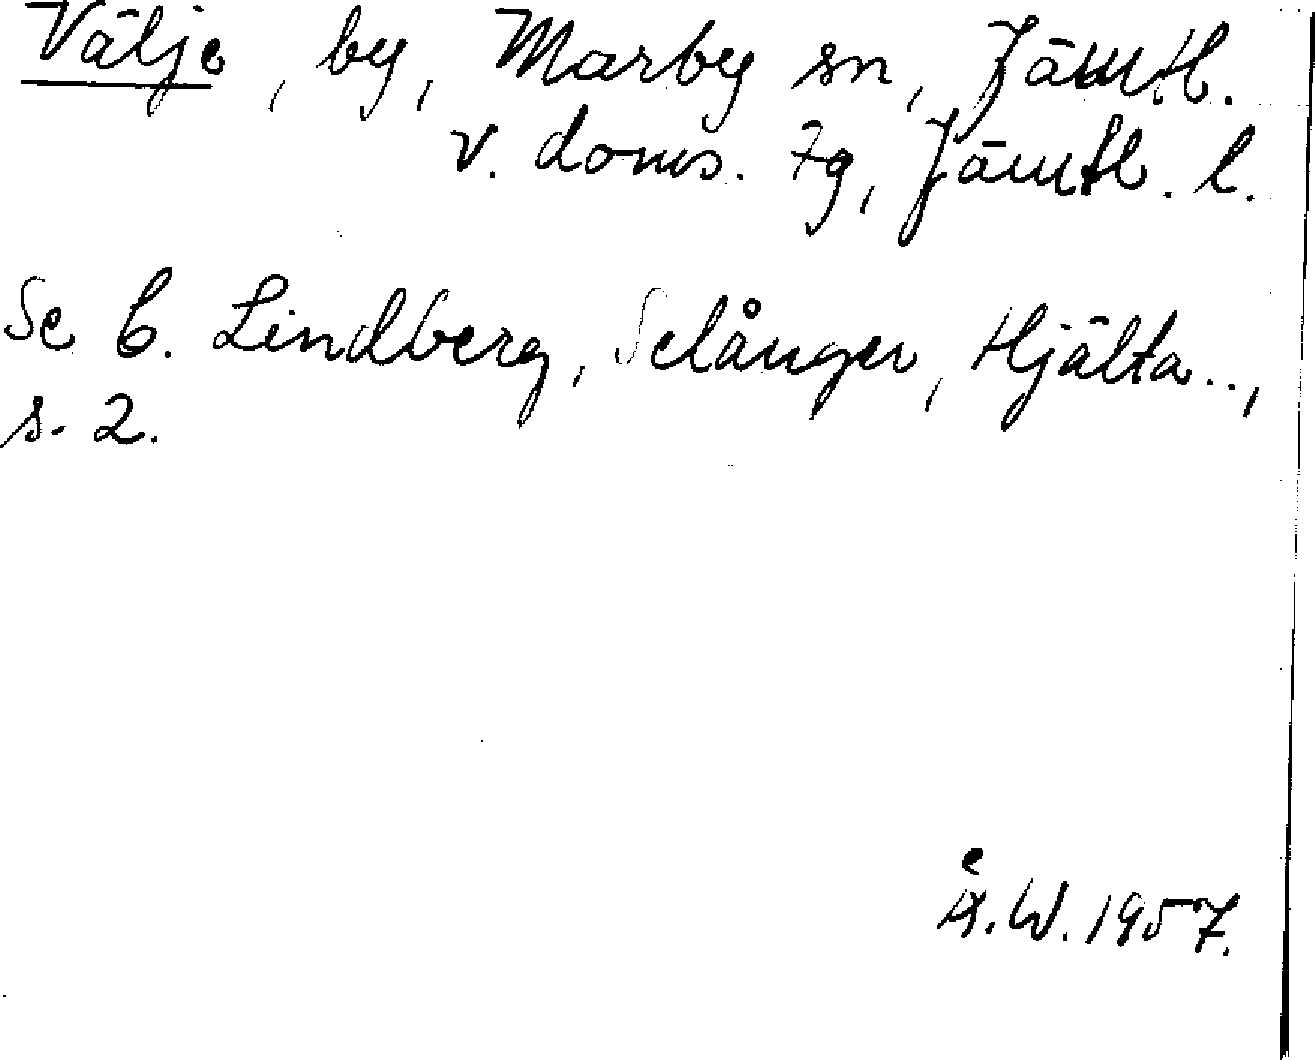 Välje, by, Marby sn, Jämtl.
v. doms. tg, Jämtl. l.
Se C. Lindberg, Selånger, Hjälta..,
s. 2.
Å.W. 1957.